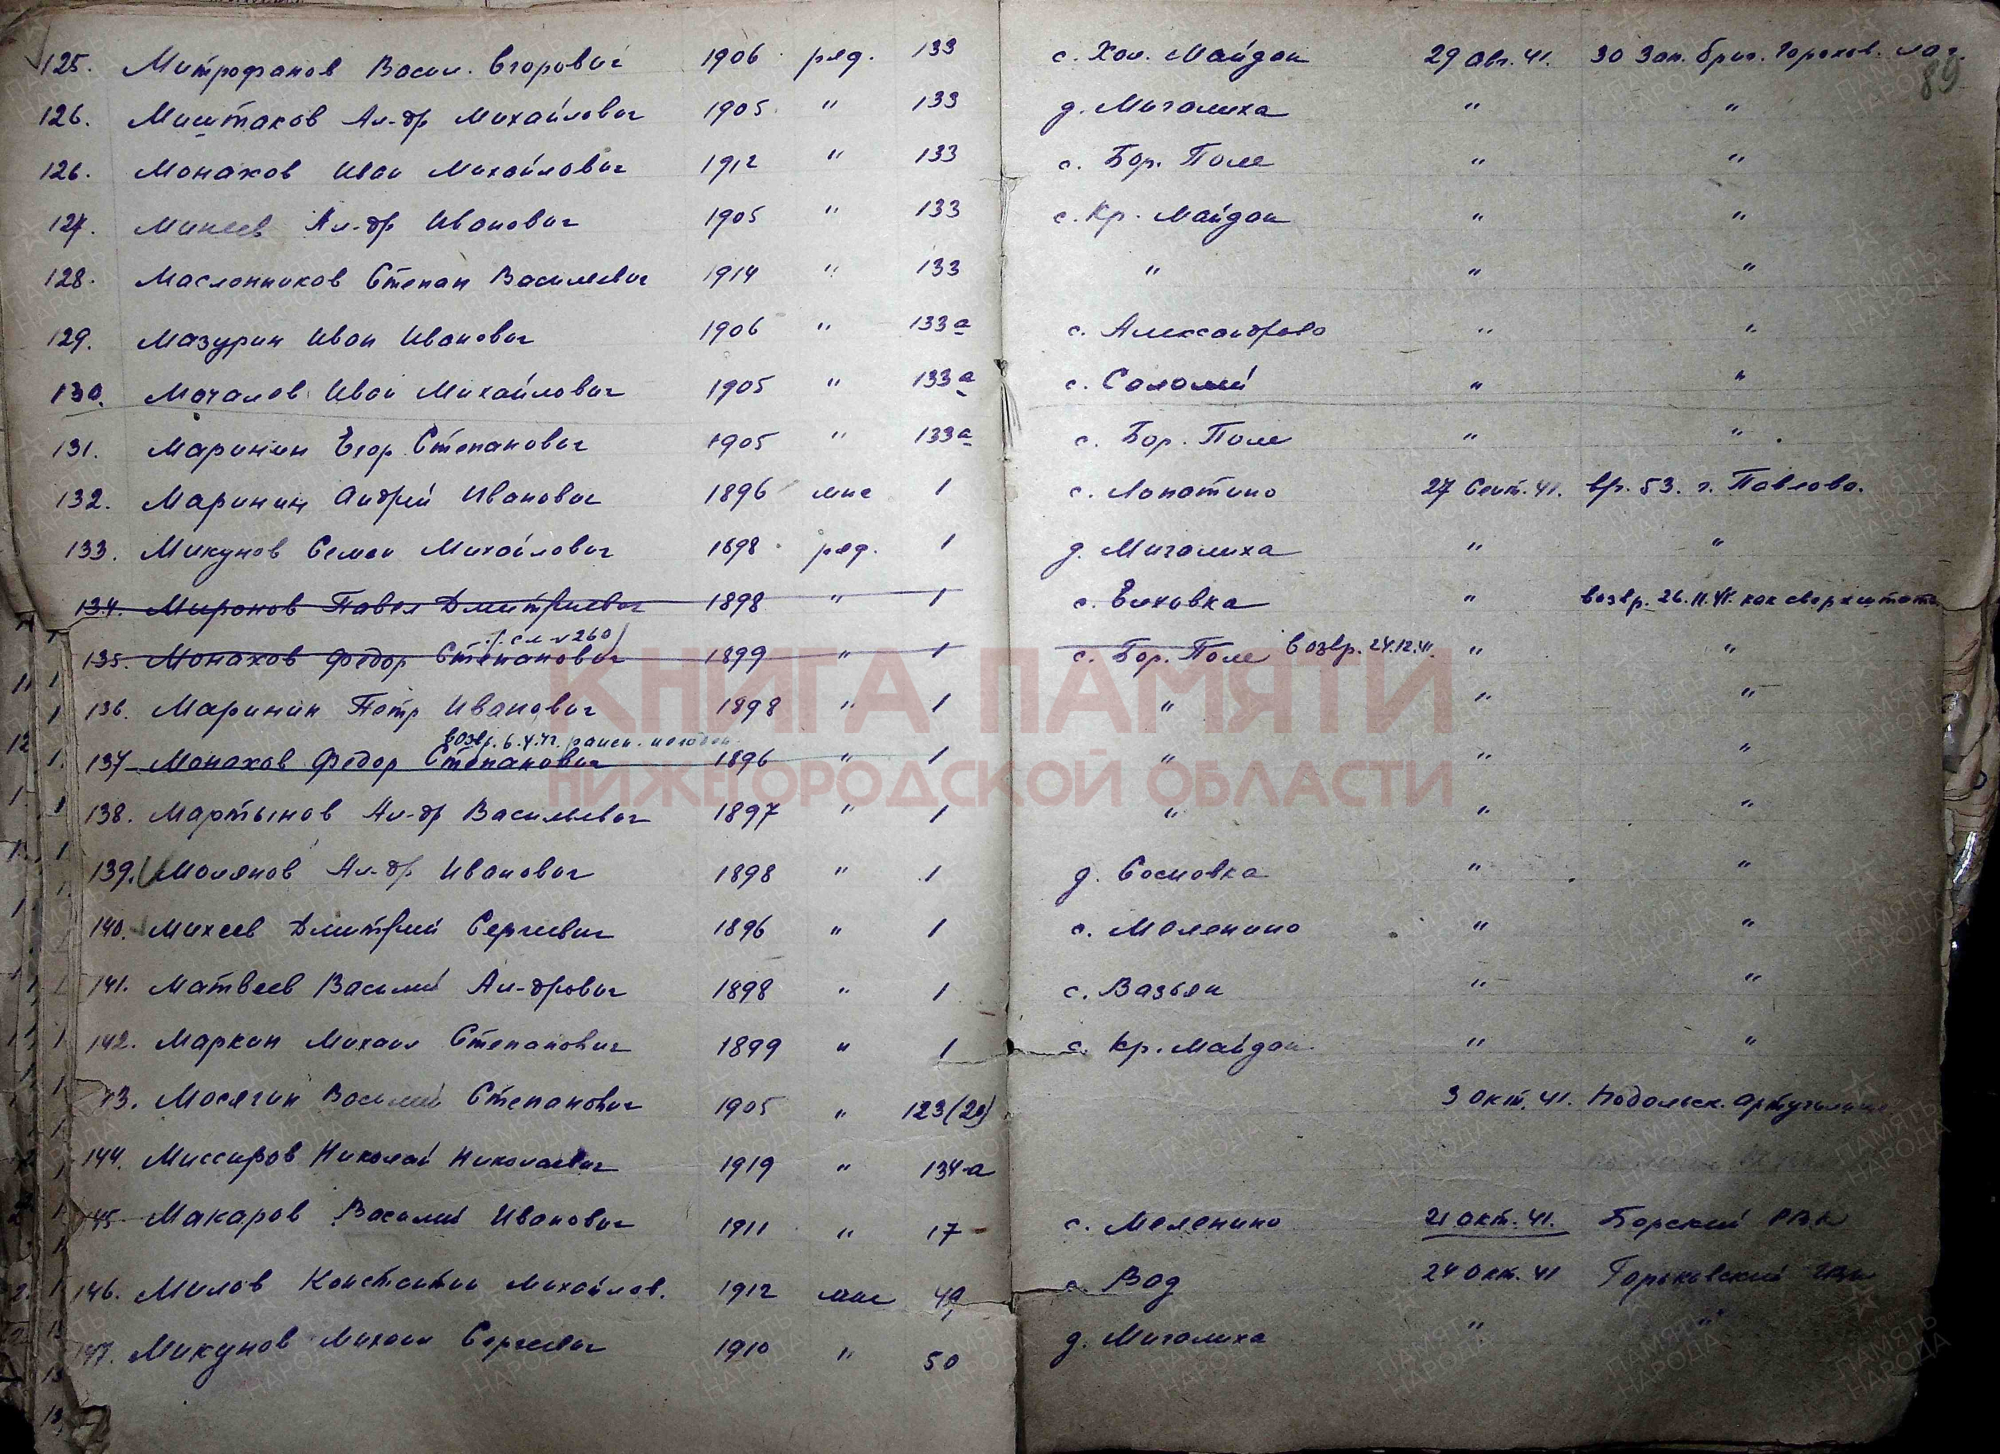 125. Митрофанов Васил. Егорович 1906 ряд. 133 с. Хол. Майдан 29 авг. 41. 30 Зап. бриг. Горохов. лаг.
89
126. Миштаков Ал-др Михайлович 1905 " 133 д. Миголиха " "
126. Монахов Иван Михайлович 1912 " 133 с. Бор. Поле " "
127. Минеев Ал-др Иванович 1905 " 133 с. Кр. Майдан " "
128. Маслонников Степан Василевич 1914 " 133 " " "
129. Мазурин Иван Иванович 1906 " 133а с. Александрово " "
130. Мочалов Иван Михайлович 1905 " 133а с. Сололей " "
131. Маринин Егор Степанович 1905 " 133а с. Бор. Поле " "
132. Маринин Андрей Иванович 1896 мнс 1 с. Лопатино 27 Сент. 41. вр. 53. г. Павлово.
133. Микунов Семен Михайлович 1898 ряд. 1 д. Миголиха " "
134. Миронов Павел Дмитриевич 1898 " 1 с. Елховка " возвр. 26.11.41. как сверхштатн.
(см №260)
135. Монахов Федор Степанович 1899 " 1 с. Бор. Поле возвр. 24.12.41. " "
136. Маринин Петр Иванович 1898 " 1 " " "
возвр. 6.4.42.
137 Монахов Федор Степанович 1896 " 1 " " "
138. Мартынов Ал-др Васильевич 1897 " 1 " " "
139. Молянов Ал-др Иванович 1898 " 1 д. Сосновка " "
140. Михеев Дмитрий Сергеевич 1896 " 1 с. Меленино " "
141. Матвеев Василий Ал-дрович 1898 " 1 с. Вазьян " "
142. Маркин Михаил Степанович 1899 " 1 с. Кр. Майдан " "
43. Мосягин Василий Степанович 1905 " 123(20) 3 окт. 41. Подольск. артучилище
144. Миссиров Николай Николаевич 1919 " 134-а
45 Макаров Василий Иванович 1911 " 17 с. Меленино 21 окт. 41. Борский РВК
146. Милов Константин Михайлов. 1912 мнс 49 с. Вад 24 окт. 41 Горьковский
147. Микунов Михаил Сергеевич 1910 " 50 д. Миголиха " "
КНИГА ПАМЯТИ
НИЖЕГОРОДСКОЙ ОБЛАСТИ
ПАМЯТЬ НАРОДА